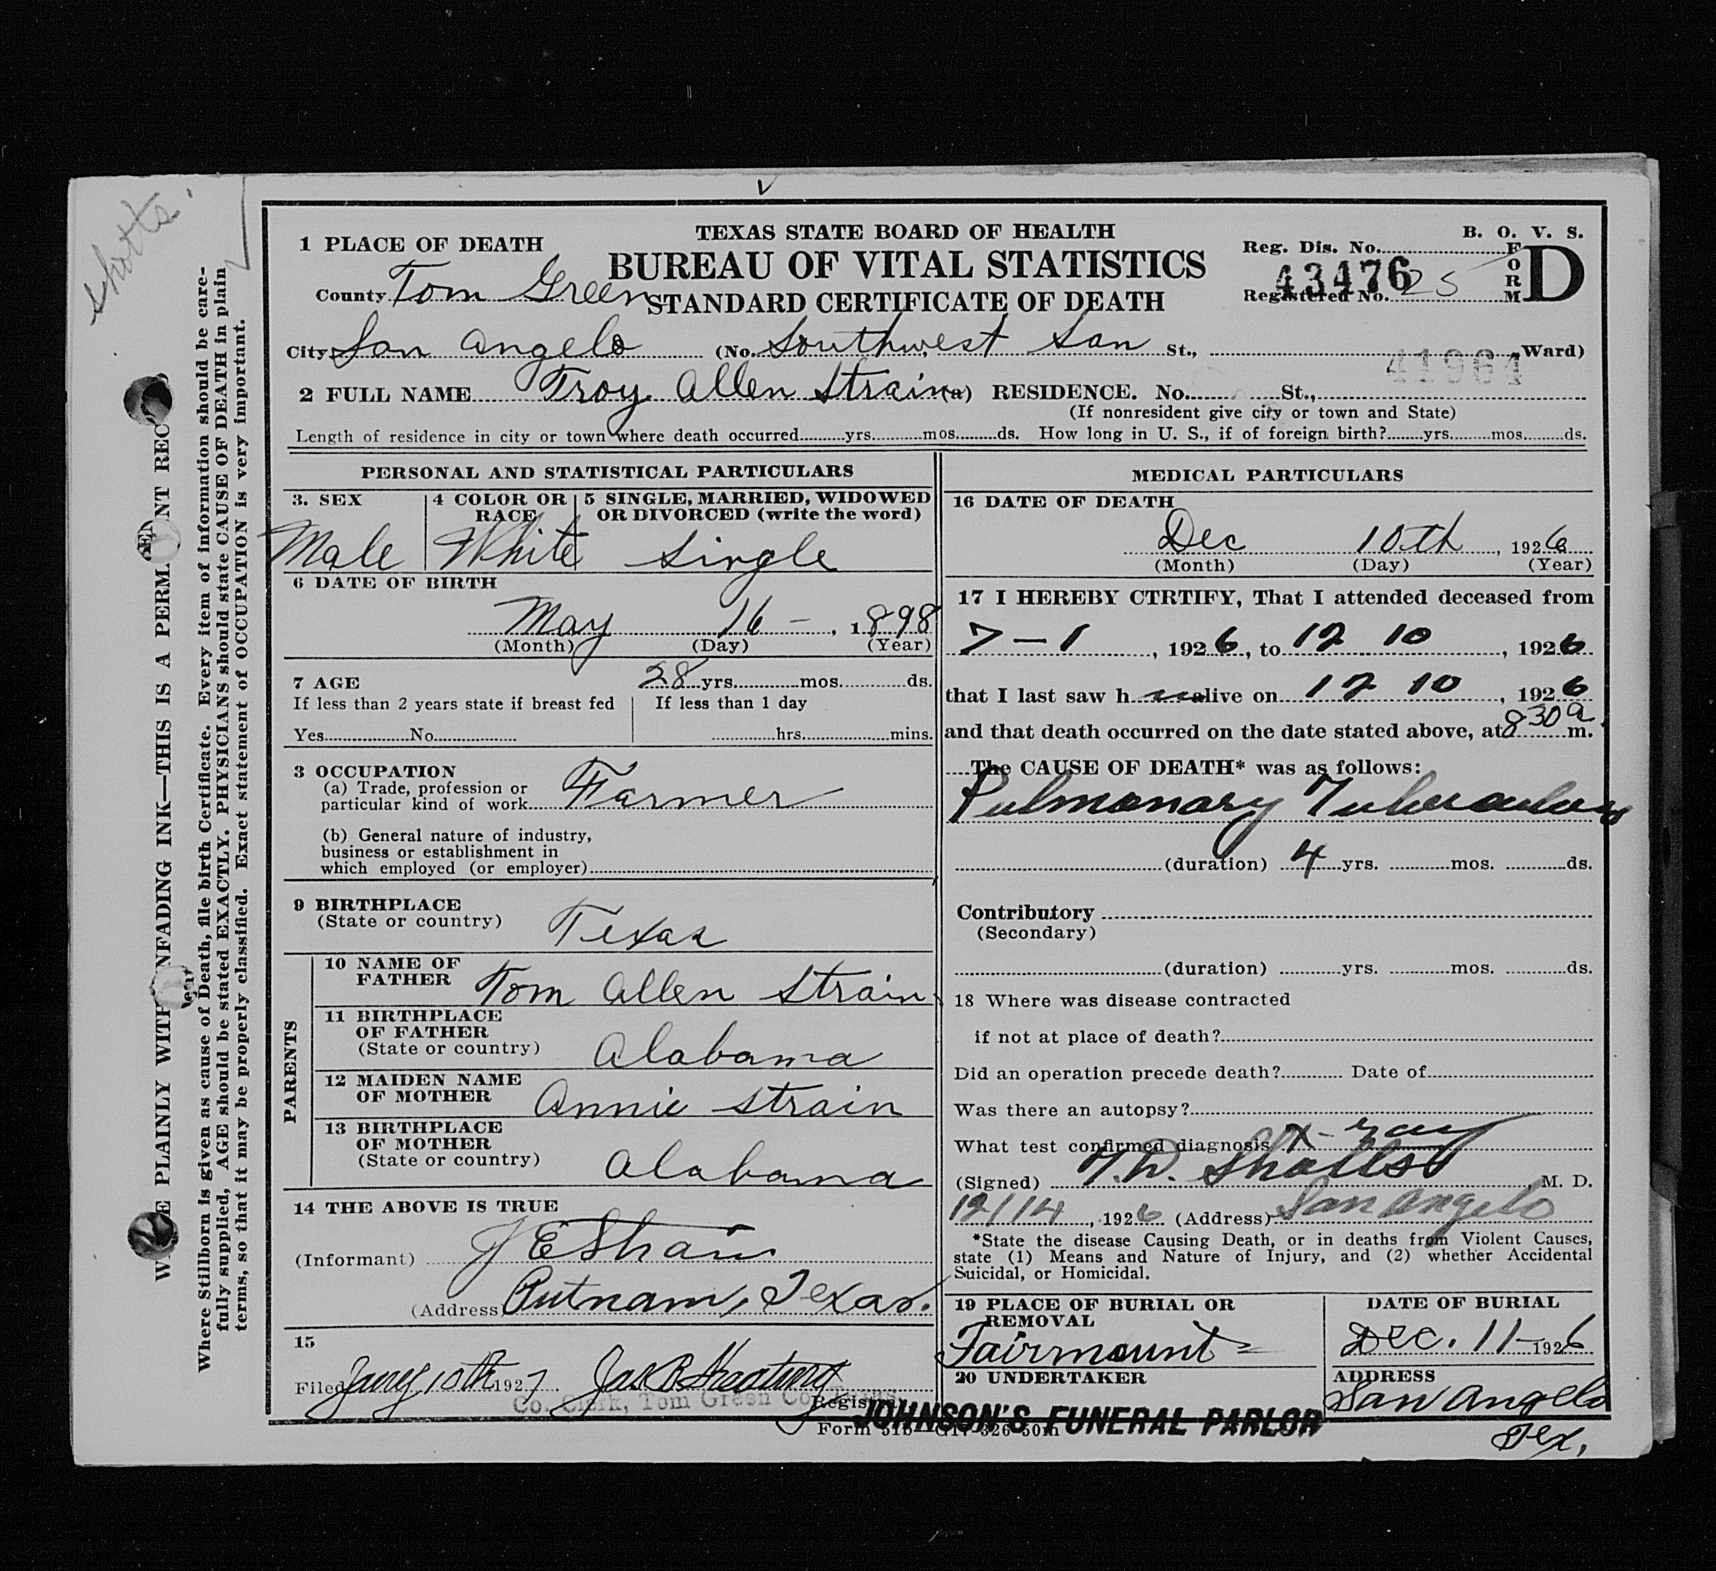 Shotts.
TEXAS STATE BOARD OF HEALTH
BUREAU OF VITAL STATISTICS
STANDARD CERTIFICATE OF DEATH
B. O. V. S.
FORM D
Reg. Dis. No.
43476
Registered No. 25
41964
1 PLACE OF DEATH
County Tom Green
City San Angelo (No. Southwest San St., Ward)
2 FULL NAME Troy Allen Strain (a) RESIDENCE. No. St.,
(If nonresident give city or town and State)
Length of residence in city or town where death occurred yrs. mos. ds. How long in U. S., if of foreign birth? yrs. mos. ds.
PERSONAL AND STATISTICAL PARTICULARS
3. SEX
Male
4 COLOR OR RACE
White
5 SINGLE, MARRIED, WIDOWED
OR DIVORCED (write the word)
Single
6 DATE OF BIRTH
May 16 - , 1898
(Month) (Day) (Year)
7 AGE 28 yrs. mos. ds.
If less than 2 years state if breast fed If less than 1 day
Yes No hrs. mins.
3 OCCUPATION
(a) Trade, profession or
particular kind of work Farmer
(b) General nature of industry,
business or establishment in
which employed (or employer)
9 BIRTHPLACE
(State or country) Texas
PARENTS
10 NAME OF
FATHER Tom Allen Strain
11 BIRTHPLACE
OF FATHER
(State or country) Alabama
12 MAIDEN NAME
OF MOTHER Annie Strain
13 BIRTHPLACE
OF MOTHER
(State or country) Alabama
14 THE ABOVE IS TRUE
(Informant) J E Strain
(Address) Putnam, Texas.
15
Filed Jany 10th 1927
Co. Clerk, Tom Green Co. Texas.
Registrar
Form 515
MEDICAL PARTICULARS
16 DATE OF DEATH
Dec 10th , 1926
(Month) (Day) (Year)
17 I HEREBY CTRTIFY, That I attended deceased from
7-1 , 1926, to 12 10 , 1926
that I last saw h alive on 12 10 , 1926
and that death occurred on the date stated above, at 830 a m.
The CAUSE OF DEATH* was as follows:
Pulmonary Tuberculosis
(duration) 4 yrs. mos. ds.
Contributory
(Secondary)
(duration) yrs. mos. ds.
18 Where was disease contracted
if not at place of death?
Did an operation precede death? Date of
Was there an autopsy?
What test confirmed diagnosis X-ray
(Signed) Shotts M. D.
12/14 , 1926 (Address) San Angelo
*State the disease Causing Death, or in deaths from Violent Causes,
state (1) Means and Nature of Injury, and (2) whether Accidental
Suicidal, or Homicidal.
19 PLACE OF BURIAL OR
REMOVAL
Fairmount
DATE OF BURIAL
Dec. 11- 1926
20 UNDERTAKER
JOHNSON'S FUNERAL PARLOR
ADDRESS
San Angelo
Tex.
PLAINLY WITH UNFADING INK—THIS IS A PERM
Where Stillborn is given as cause of Death, file birth Certificate. Every item of information should be care-
fully supplied, AGE should be stated EXACTLY. PHYSICIANS should state CAUSE OF DEATH in plain
terms, so that it may be properly classified. Exact statement of OCCUPATION is very important.